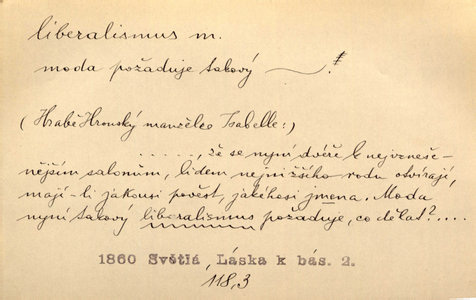 liberalismus m.
moda požaduje takový —— .#
(Hrabě Hronský manželce Isabelle:)
....., že se nyní dvéře k nejvzneše-
nějším salonům, lidem nejnižšího rodu otvírají,
mají-li jakousi pověst, jakéhosi jmena. Moda
nyní takový liberalismus požaduje, co dělat?....
1860 Světlá, Láska k bás. 2.
118,3